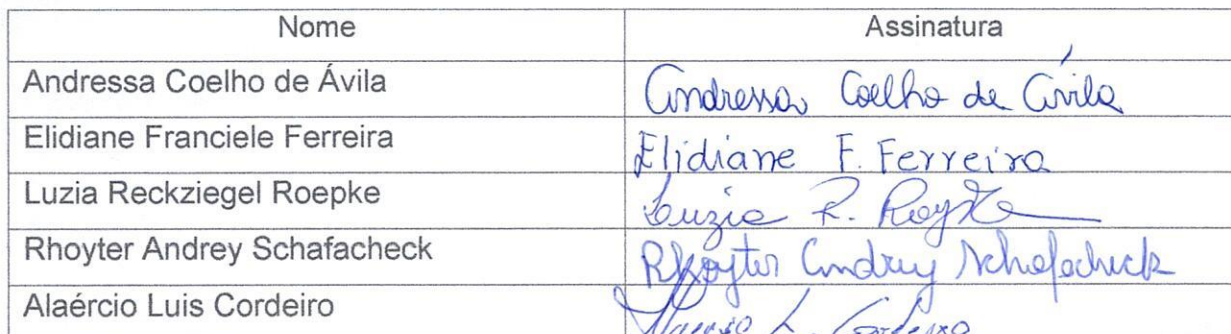 Nome Assinatura
Andressa Coelho de Ávila Andressa Coelho de Ávila
Elidiane Franciele Ferreira Elidiane F. Ferreira
Luzia Reckziegel Roepke Luzia R. Roepke
Rhoyter Andrey Schafacheck Rhoyter Andrey Schafacheck
Alaércio Luis Cordeiro Alaércio L. Cordeiro